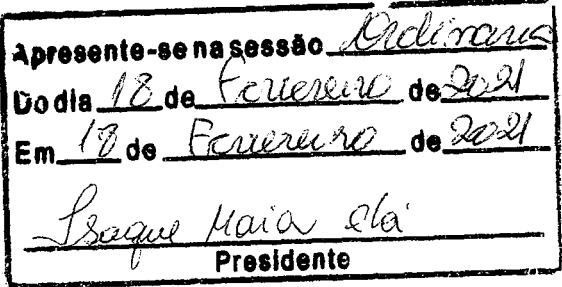 Apresente-se na sessão Ordinaria
Do dia 18 de Fevereiro de 2021
Em 18 de Fevereiro de 2021
Isaque Maia
Presidente